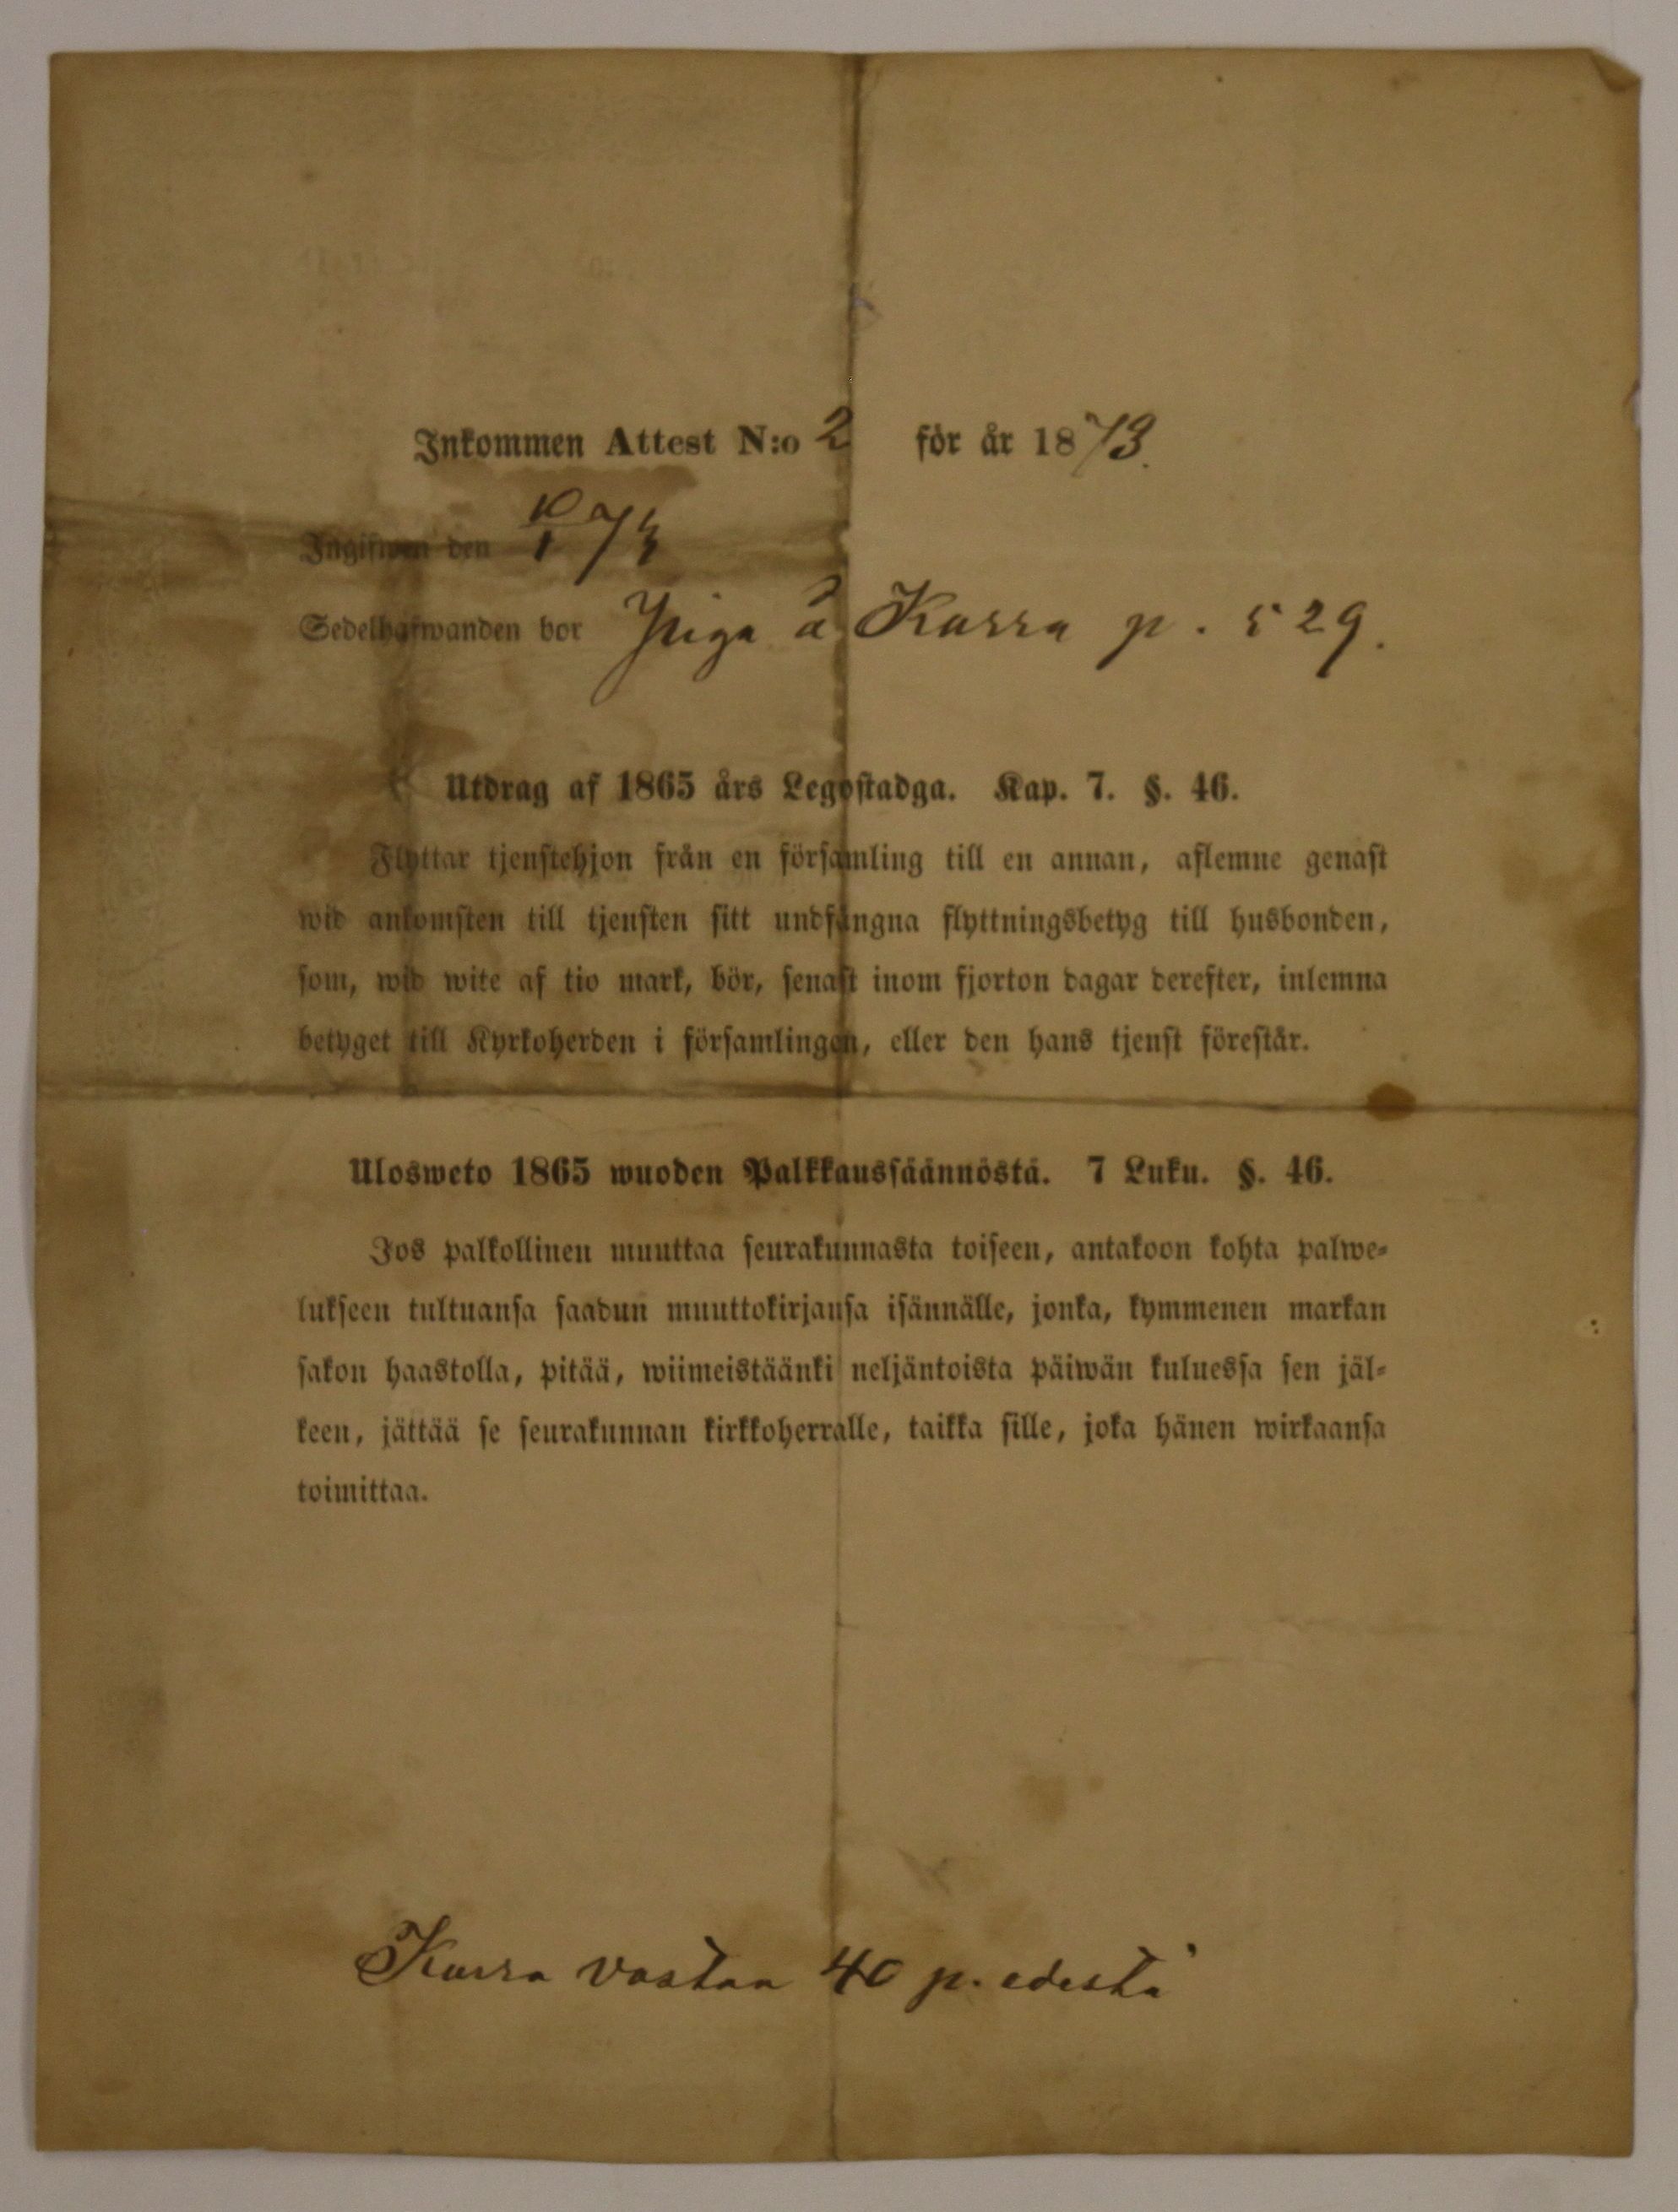 Inkommen Attest N:o 2 för år 1873.
Ingifwen den 10/1 73
Sedelhafwanden bor Piga å Karra p. 529.
Utdrag af 1865 års Legostadga. Kap. 7. §. 46.
Flyttar tjenstehjon från en församling till en annan, aflemne genast
wid ankomsten till tjensten sitt undfångna flyttningsbetyg till husbonden,
som, wid wite af tio mark, bör, senast inom fjorton dagar derefter, inlemna
betyget till Kyrkoherden i församlingen, eller den hans tjenst förestår.
Ulosweto 1865 wuoden Palkkaussäännöstä. 7 Luku. §. 46.
Jos palkollinen muuttaa seurakunnasta toiseen, antakoon kohta palwe-
lukseen tultuansa saadun muuttokirjansa isännälle, jonka, kymmenen markan
sakon haastolla, pitää, wiimeistäänki neljäntoista päiwän kuluessa sen jäl-
keen, jättää se seurakunnan kirkkoherralle, taikka sille, joka hänen wirkaansa
toimittaa.
Karra vastaa 40 p. edestä